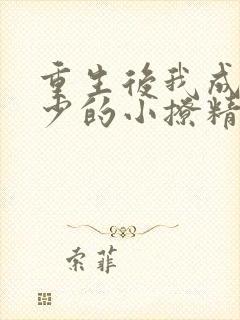 重生後我成
少的小撩精
索菲